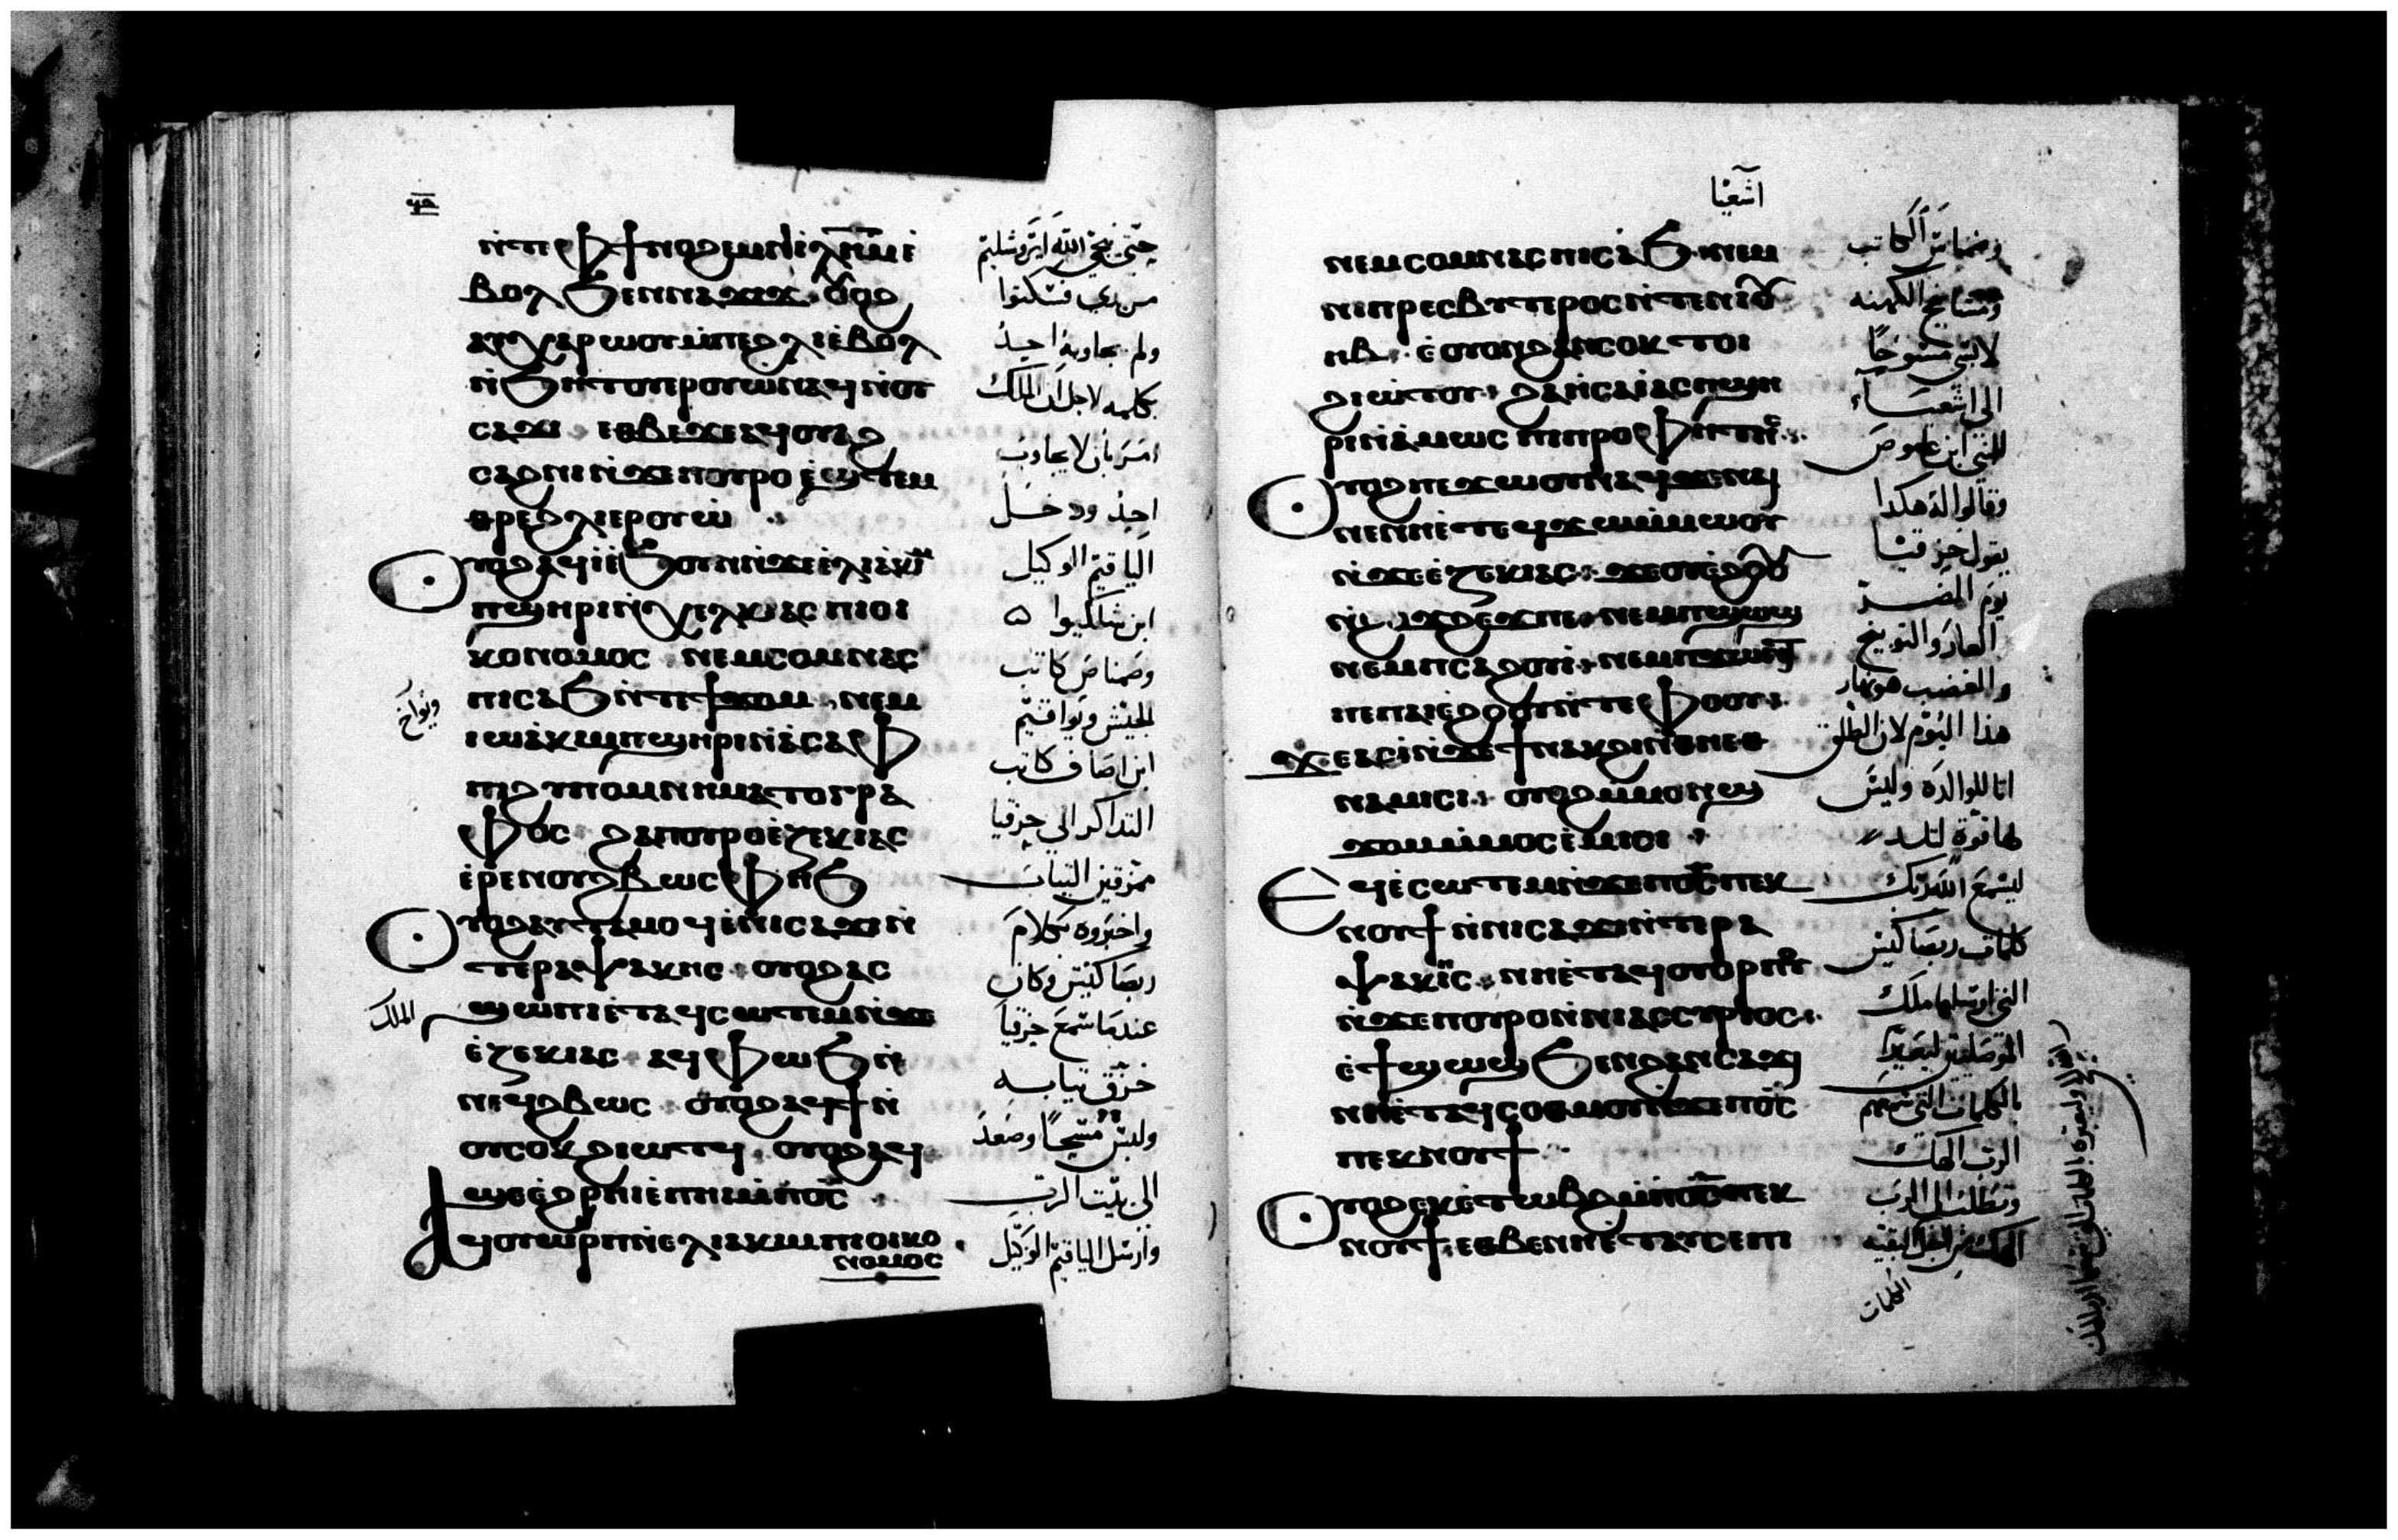 ⲛ̀ⲧⲉⲫϯⲛⲟϩⲉⲙⲛ̀ⲓⲗⲏⲙⲉ̀
ⲃⲟⲗϧⲉⲛⲛⲁϫⲓϫ ⲟⲩⲟϩ
ⲁⲩⲭⲁⲣⲱⲟⲩⲙ̀ⲡⲉϩⲗⲓⲉ̀ⲃⲟⲗ
ⲛ̀ϧⲏⲧⲟⲩⲉⲣⲟⲩⲱ̀ⲛⲁϥⲛ̀ⲟⲩ
ⲥⲁϫⲓ ⲉⲑⲃⲉϫⲉⲁϥⲟⲩⲁϩ
ⲥⲁϩⲛⲓⲛ̀ϫⲉⲡⲟⲩⲣⲟⲉ̀ϣⲧⲉⲙ
ⲑⲣⲉϩⲗⲓⲉⲣⲟⲩⲱ̀
ⲟⲩⲟϩⲁϥⲓ̀ⲉ̀ϧⲟⲩⲛⲛ̀ϫⲉⲉ̀ⲗⲓⲁ̀ⲕⲓⲙ
ⲡϣⲏⲣⲓⲛ̀ⲭⲉⲗⲕⲓⲁⲥ ⲡⲓⲟⲓ
ⲕⲟⲛⲟⲙⲟⲥ ⲛⲉⲙⲥⲟⲙⲛⲁⲥ
ⲡⲓⲥⲁϧⲛ̀ⲧⲉϯϫⲟⲙ ⲛⲉⲙ
ⲓⲱⲁ̀ⲕⲓⲙⲡϣⲏⲣⲓⲛ̀ⲁ̀ⲥⲁⲫ
ⲡⲓϩⲩⲡⲟⲙⲛⲏⲙⲁⲧⲟⲅⲣⲁ
ⲫⲟⲥ ϩⲁⲡⲟⲩⲣⲟⲉ̀ⲍⲉⲕⲓⲁⲥ
ⲉ̀ⲣⲉⲛⲟⲩϩⲃⲱⲥⲫⲏϧ
ⲟⲩⲟϩⲁⲩⲧⲁⲙⲟϥⲉ̀ⲛⲓⲥⲁϫⲓⲛ̀
ⲧⲉⲣⲁⲯⲁⲕⲏⲥ ⲟⲩⲟϩⲁⲥ
ϣⲱⲡⲓⲉ̀ⲧⲁϥⲥⲱⲧⲉⲙⲛ̀ϫⲉ
ⲉ̀ⲍⲉⲕⲓⲁⲥ ⲁϥⲫⲱϧⲛ̀
ⲛⲉϥϩⲃⲱⲥ ⲟⲩⲟϩⲁϥϯⲛ̀
ⲟⲩⲥⲟⲕϩⲓⲱⲧϥ ⲟⲩⲟϩⲁϥ
ϣⲉⲉ̀ϩⲣⲏⲓⲉ̀ⲡⲏⲓⲙ̀ⲡⲟ̅ⲥ̅
ⲁϥⲟⲩⲱⲣⲡⲛ̀ⲉⲗⲓⲁⲕⲓⲙⲡⲓⲟⲓⲕⲟ
ⲛⲟⲙⲟⲥ
حتى ينجي الله ايروشليم
من يدي فسكتوا
ولم يجاوبه احد
بكلمه لاجل ان الملك
امر بان لا يجاوب
احد ودخل
الياقيم الوكيل
ابن شلكيوا
وصمناص كاتب
الجيش ويواقيم
ابن اصاف كاتب
التداكر الى حزقيا
ممزقين التياب
واخبروه بكلام
ربصاكيس وكان
عندما سمع حزقيا
الملك
خرق تيابه
ولبس مسحًا وصعد
الى بيت الرب
وارسل الياقيم الوكيل
اشعيا
ⲛⲉⲙⲥⲟⲙⲛⲁⲥⲡⲓⲥⲁϧ ⲛⲉⲙ
ⲛⲓⲡⲣⲉⲥⲃⲩⲧⲉⲣⲟⲥⲛ̀ⲧⲉⲛⲓⲟⲩ
ⲏⲃ ⲉ̀ⲟⲩⲟⲛϩⲁⲛⲥⲟⲕ ⲧⲟⲓ
ϩⲓⲱⲧⲟⲩ ϩⲁⲏⲥⲁⲓ̀ⲁⲥⲡϣⲏ
ⲣⲓⲛ̀ⲁ̀ⲙⲱⲥ ⲡⲓⲡⲣⲟⲫⲏⲧⲏⲥ
ⲟⲩⲟϩⲡⲉϫⲱⲟⲩⲛⲁϥϫⲉⲛⲁⲓ
ⲛⲉⲛⲏⲉ̀ⲧⲉϥϫⲱⲙ̀ⲙⲱⲟⲩ
ⲛ̀ϫⲉⲉ̀ⲍⲉⲕⲓⲁⲥ ϫⲉⲟⲩⲉ̀ϩⲟⲟⲩ
ⲛ̀ϩⲟϫϩⲉϫⲡⲉ ⲛⲉⲙⲡϣⲱϣ
ⲛⲉⲙⲡⲥⲁϩⲟⲩⲓ ⲛⲉⲙⲡϫⲱⲛⲧ
ⲙ̀ⲡⲁⲓⲉ̀ϩⲟⲟⲩⲛ̀ⲧⲉⲫⲟⲟⲩ
ϫⲉⲁⲥⲓ̀ⲛ̀ϫⲉϯⲛⲁⲕϩⲓⲛ̀ⲑⲏⲉⲑ
ⲛⲁⲙⲓⲥⲓ ⲟⲩⲟϩⲙ̀ⲙⲟⲛϣ
ϫⲟⲙⲙ̀ⲙⲟⲥⲉ̀ⲙⲓⲥⲓ
ⲉϥⲉ̀ⲥⲱⲧⲉⲙⲛ̀ϫⲉⲡⲟ̅ⲥ̅ⲡⲉⲕ
ⲛⲟⲩϯⲛ̀ⲛⲓⲥⲁϫⲓⲛ̀ⲧⲉⲣⲁ
ⲯⲁⲕⲏⲥ ⲛⲏⲉ̀ⲧⲁϥⲟⲩⲟⲣⲡⲟⲩ
ⲛ̀ϫⲉⲡⲟⲩⲣⲟⲛ̀ⲛⲓⲁⲥⲥⲩⲣⲓⲟⲥ
ⲉ̀ϯϣⲱϣϧⲉⲛϩⲁⲛⲥⲁϫⲓ
ⲛⲏⲉ̀ⲧⲁϥⲥⲟⲑⲙⲟⲩⲛ̀ϫⲉⲡⲟ̅ⲥ̅
ⲡⲉⲕⲛⲟⲩϯ
ⲟⲩⲟϩⲉⲕⲉ̀ⲧⲱⲃϩⲙ̀ⲡⲟ̅ⲥ̅ⲡⲉⲕ
ⲛⲟⲩϯ ⲉⲑⲃⲉⲛⲏⲉ̀ⲧⲁⲩⲥⲉⲡⲓ
وصمناس الكاتب
ومشايخ الكهنه
لابسي مسوحًا
الى اشعياء
النبي ابن عاموص
وقالوا له هكدا
يقول حزقيا
يوم الضر
العار والتوبيخ
والغضب هونهار
هذا اليوم لان الطلق
اتا للوالده وليس
لها قوة لتلد
ليسمع الله ربك
كلمات ربصاكيس
التي ارسلها ملك
بالكلمات التي سمعهم
الرب الهك
وتطلب الى الرب
الهك من اجل البقيه
الكلمات